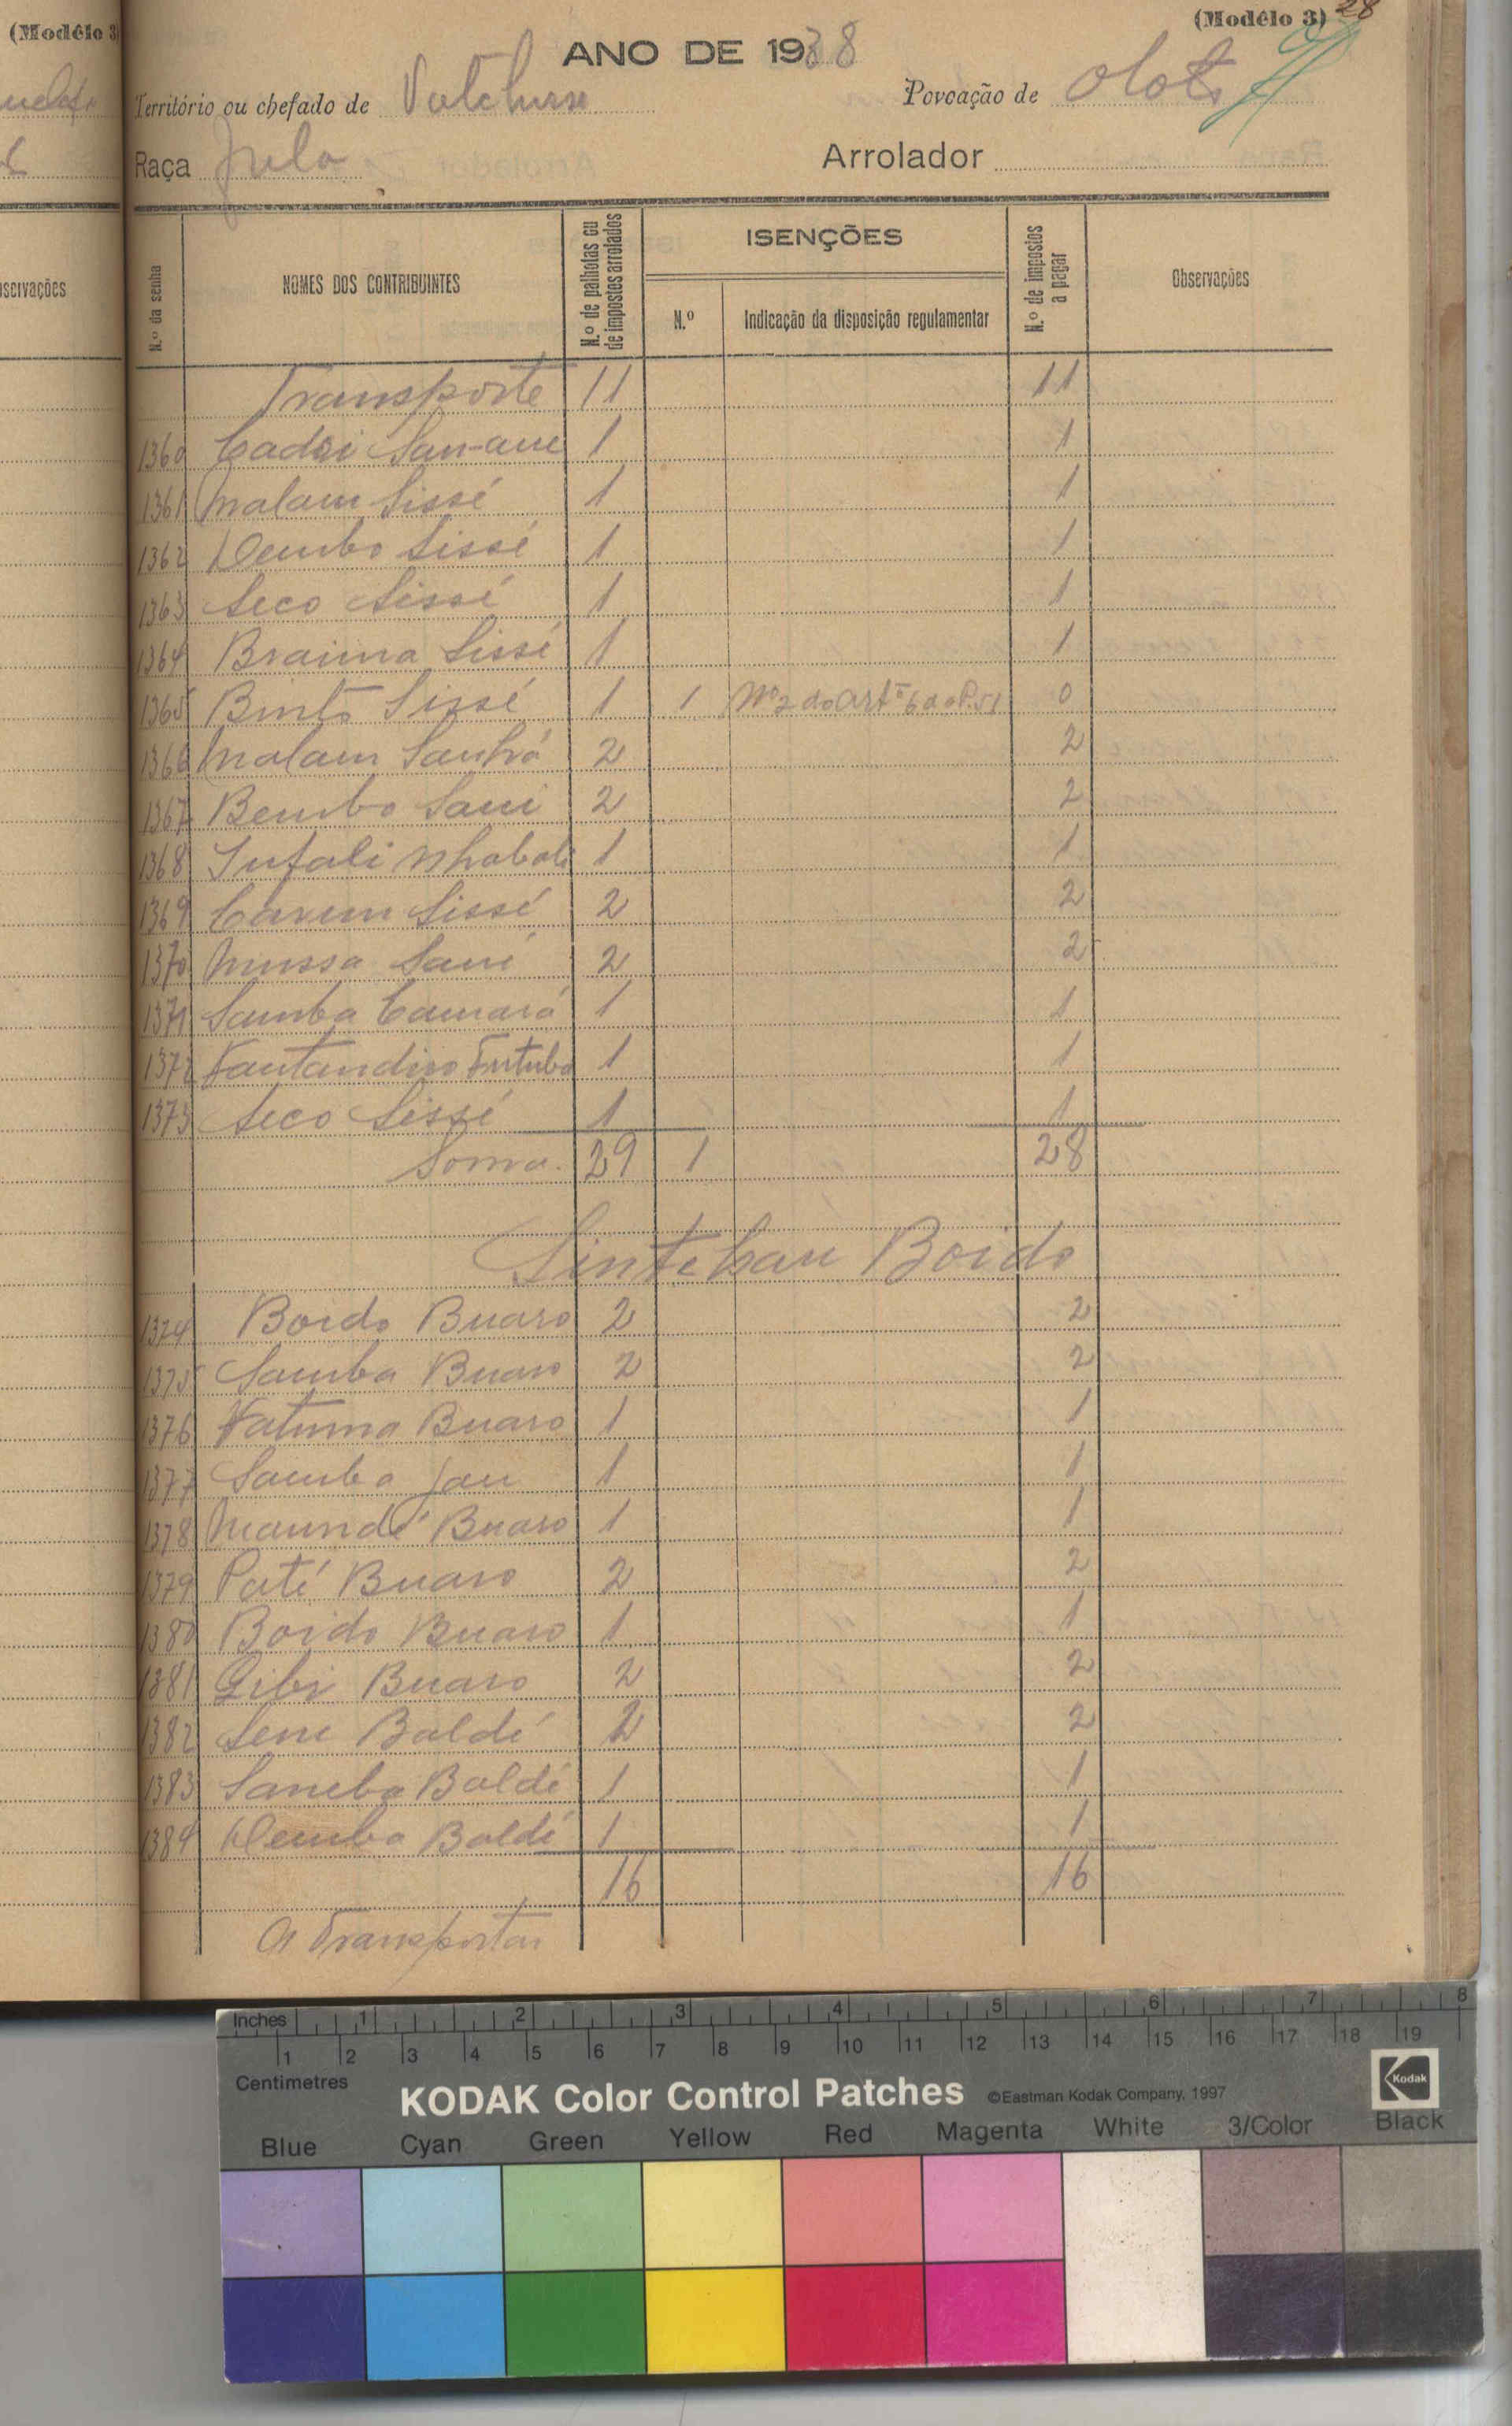 (Modêlo 3)
(Modêlo 3) 28
ANO DE 1938
Território ou chefado de
Povoação de
Raça Fula
Arrolador
servações
N.º da senha
NOMES DOS CONTRIBUINTES
N.º de palhotas ou de impostos arrolados
ISENÇÕES
N.º
Indicação da disposição regulamentar
N.º de impostos a pagar
Observações
Transporte 11 11
1360 1 1
1361 Malam Sissé 1 1
1362 Dembo Sissé 1 1
1363 Seco Sissé 1 1
1364 Braima Sissé 1 1
1365 Binto Sissé 1 1 Nº 2 do Artº 6 do 0
1366 Malam Sanhá 2 2
1367 Bembo Sani 2 2
1368 1 1
1369 Carum Sissé 2 2
1370 Mussa Sani 2 2
1371 Samba Camará 1 1
1372 1 1
1373 Seco Sissé 1 1
Soma. 29 1 28
Boido
1374 Boido Buaro 2 2
1375 Samba Buaro 2 2
1376 Fatuma Buaro 1 1
1377 Samba Jau 1 1
1378 Maundé Buaro 1 1
1379 Paté Buaro 2 2
1380 Boido Buaro 1 1
1381 Gibi Buaro 2 2
1382 Sene Baldé 2 2
1383 Samba Baldé 1 1
1384 Demba Baldé 1 1
16 16
A Transportar
Inches 1 2 3 4 5 6 7 8
1 2 3 4 5 6 7 8 9 10 11 12 13 14 15 16 17 18 19
Centimetres
KODAK Color Control Patches ©Eastman Kodak Company, 1997 Kodak
Blue Cyan Green Yellow Red Magenta White 3/Color Black